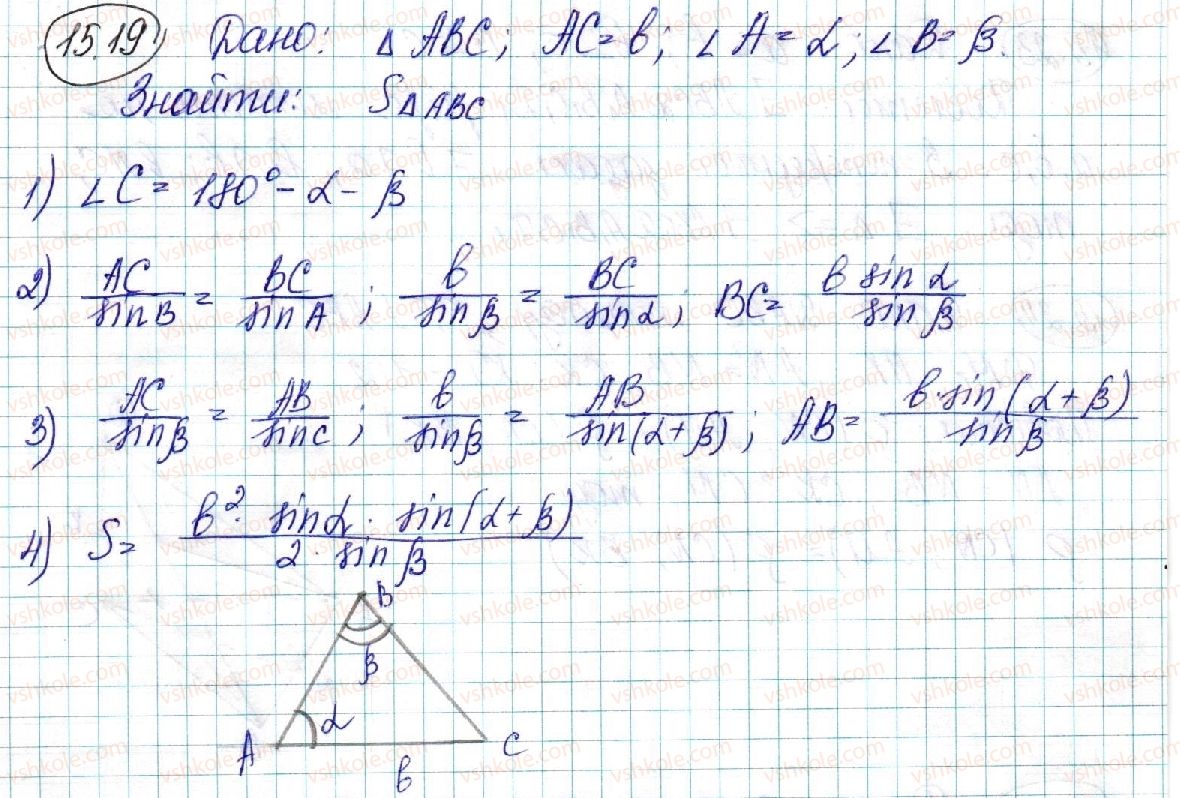 15.19 Дано: △ABC; AC=b; ∠A=α; ∠B=β.
Знайти: S△ABC
1) ∠C=180°-α-β
2) AC/sinB = BC/sinA; b/sinβ = BC/sinα; BC= b sinα/sinβ
3) AC/sinβ = AB/sinc; b/sinβ = AB/sin(α+β); AB= b·sin(α+β)/sinβ
4) S= b²·sinα·sin(α+β)/2·sinβ
B
β
A α C
b
vshkole.com